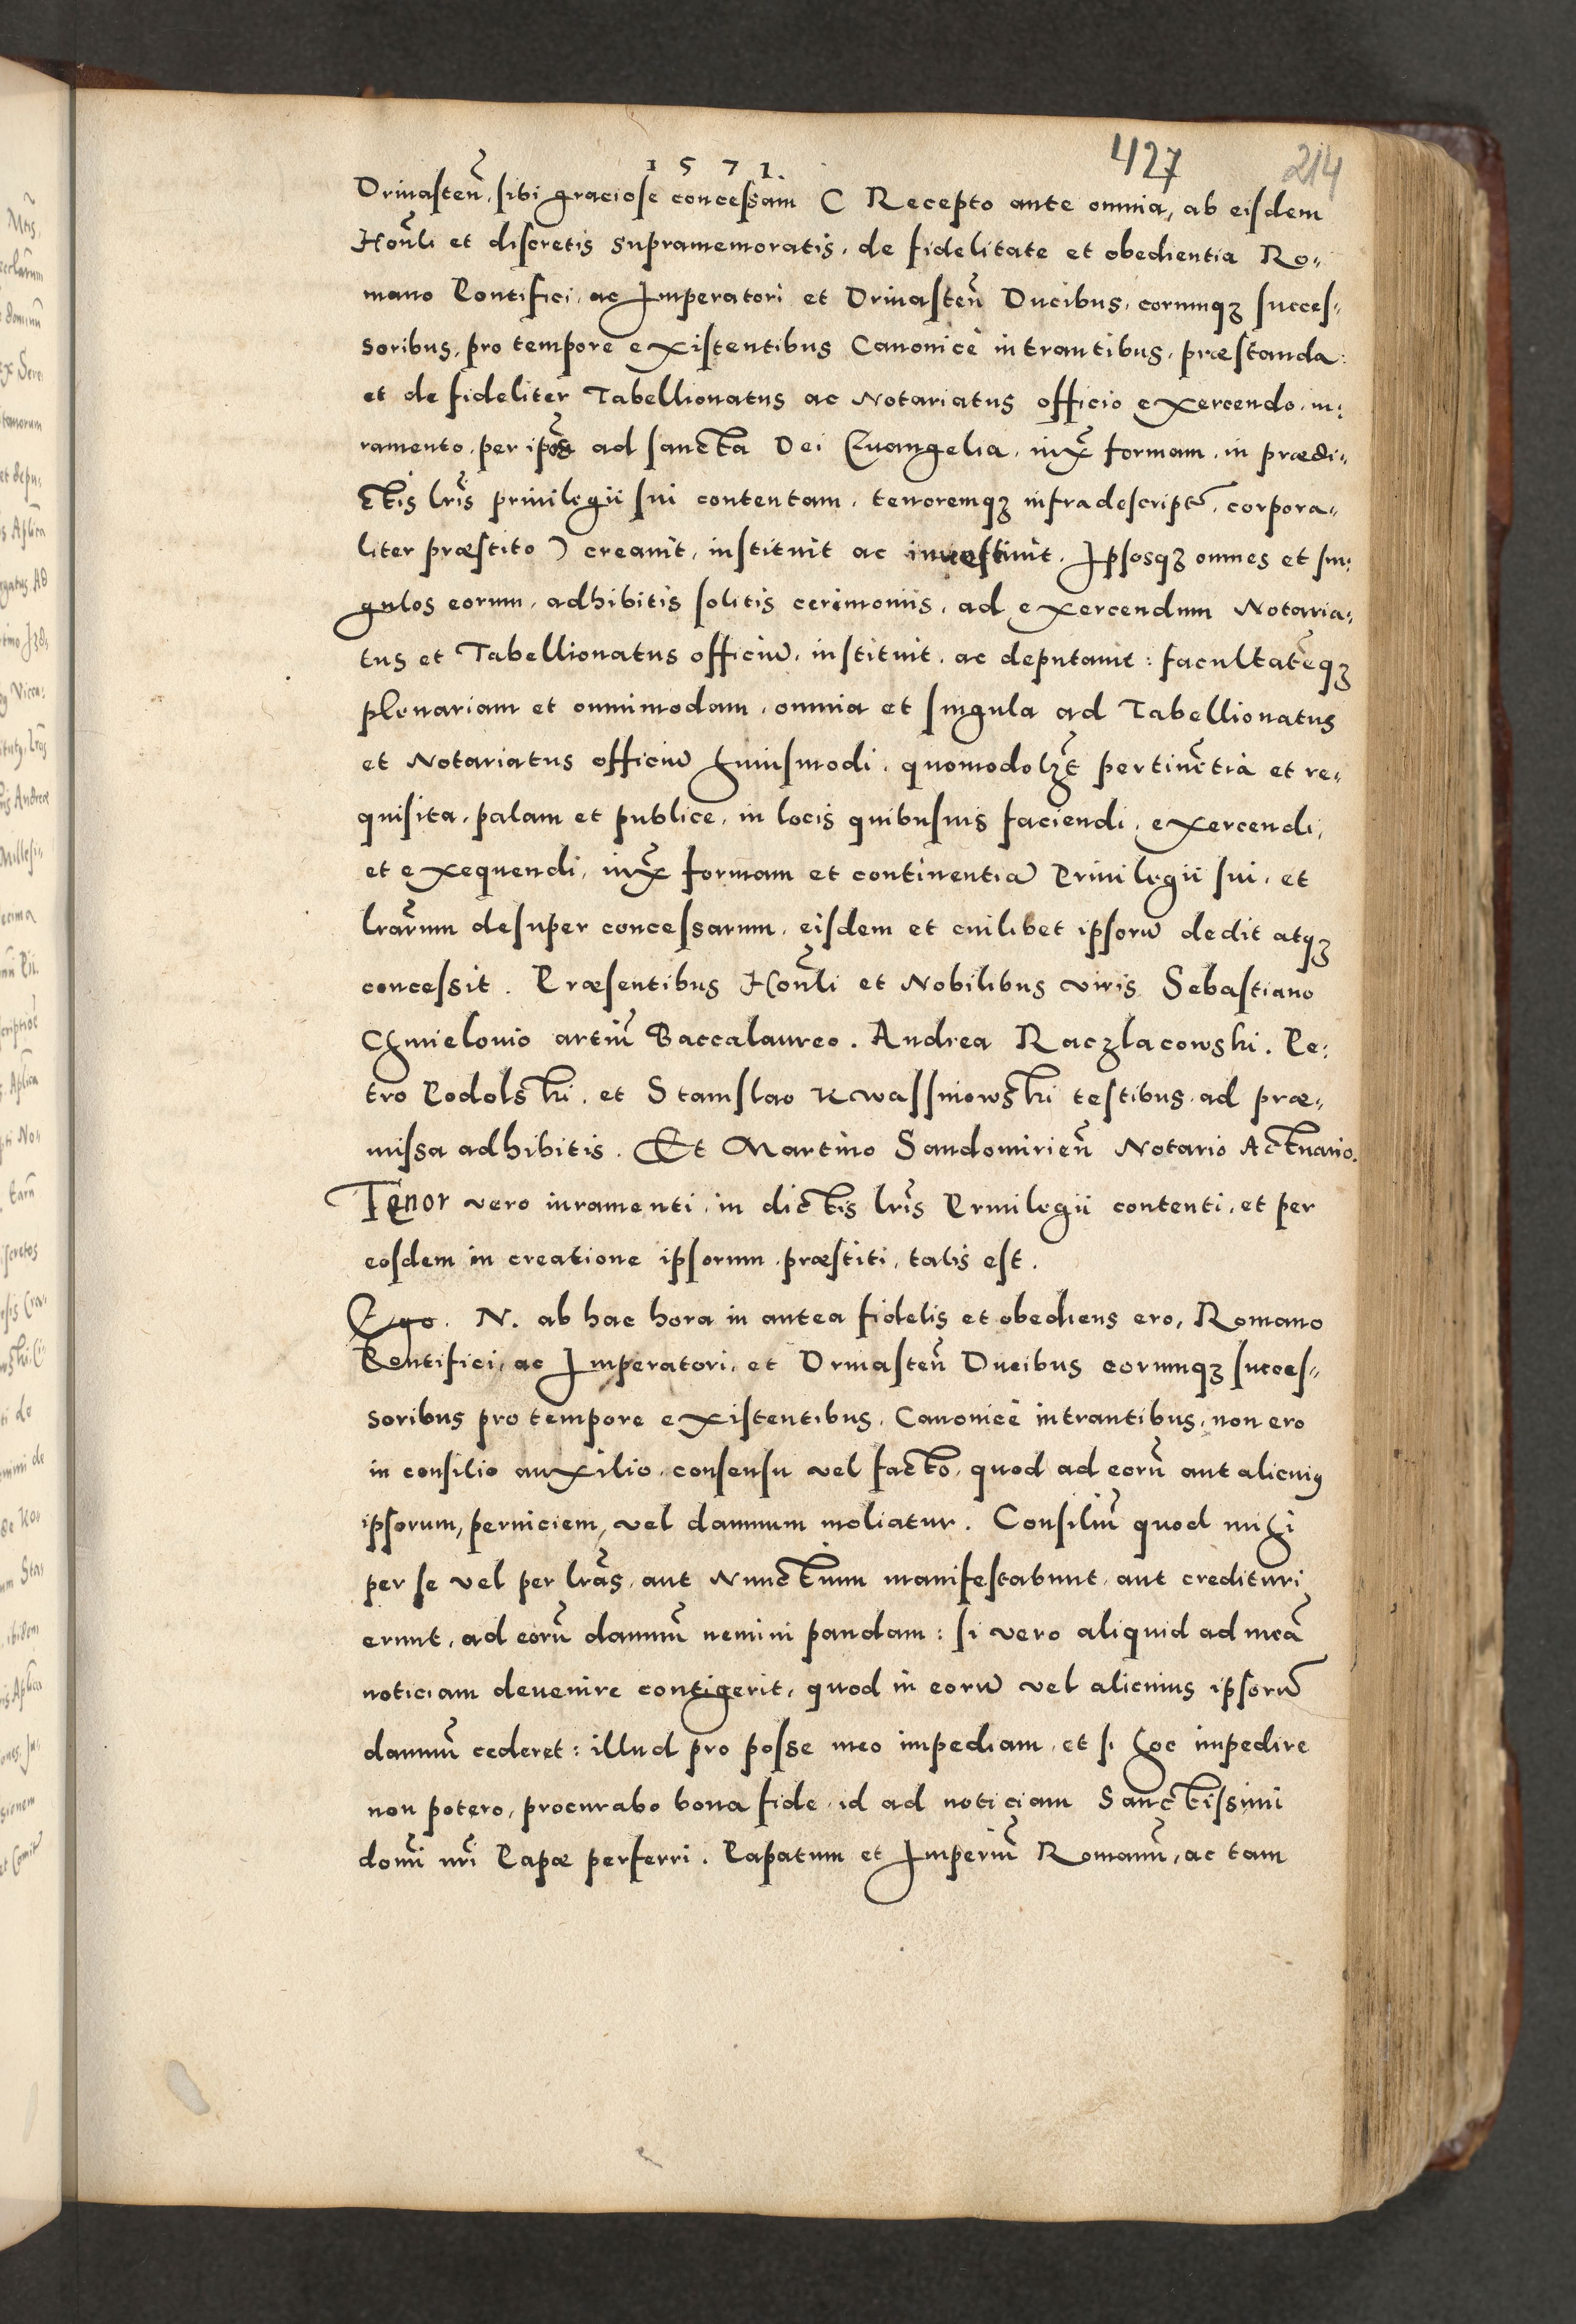 427 214
1571.
Driuasteñ, sibi graciose concessam ( Recepto ante omnia, ab eisdem
Hoñli et discretis supramemoratis, de fidelitate et obedientia Ro„
mano Pontifici, ac Imperatori et Driuasteñ Ducibus, eorumqꝫ succes„
soribus, pro tempore existentibus Canonice intrantibus, præstanda:
et de fideliter Tabellionatus ac Notariatus officio exercendo, iu:
ramento, per ip̃os ad sancta Dei Euangelia, iux̃ formam, in prædi„
ctis lr̃is priuilegii sui contentam, tenoremqꝫ infradescript̃, corpora„
liter præstito ) creauit, instituit ac inuestiuit. Ipsosqꝫ omnes et sin:
gulos eorum, adhibitis solitis cerimoniis, ad exercendum Notaria„
tus et Tabellionatus officiũ, instituit, ac deputauit: facultatẽqꝫ
plenariam et omnimodam, omnia et singula ad Tabellionatus
et Notariatus officiũ huiusmodi, quomodolꝫt̃ pertinẽtia et re„
quisita, palam et publice, in locis quibusuis faciendi, exercendi,
et exequendi, iux̃ formam et continentiã Priuilegii sui, et
lrãrum desuper concessarum, eisdem et cuilibet ipsorũ dedit atqꝫ
concessit. Præsentibus Hoñli et Nobilibus viris Sebastiano
Chmielouio artiũ Baccalaureo. Andrea Raczlacowski. Pe:
tro Podolski, et Stanislao Kwassniowski testibus, ad præ„
missa adhibitis. Et Martino Sandomirieñ Notario Actuario.
Tenor vero iuramenti, in dictis lr̃is Priuilegii contenti, et per
eosdem in creatione ipsorum præstiti, talis est.
Ego. N. ab hac hora in antea fidelis et obediens ero, Romano
Pontifici, ac Imperatori, et Driuasteñ Ducibus eorumqꝫ succes„
soribus pro tempore existentibus, Canonice intrantibus, non ero
in consilio auxilio, consensu vel facto, quod ad eorũ aut alicuiꝰ
ipsorum, perniciem, vel damnum moliatur. Consiliũ quod mihi
per se vel per lrãs, aut Nunctium manifestabunt, aut credituri
erunt, ad eorũ damnũ nemini pandam: si vero aliquid ad meã
noticiam deuenire contigerit, quod in eorũ vel alicuius ipsorũ
damnũ cederet: illud pro posse meo impediam, et si hoc impedire
non potero, procurabo bona fide, id ad noticiam Sanctissimi
dom̃i nr̃i Papæ perferri. Papatum et Imperiũ Romanũ, ac tam